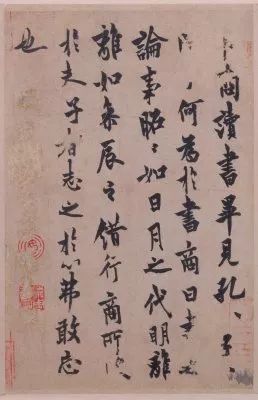 卜商讀書畢見孔〻子〻
何為於書商曰書
論事昭〻如日月之代明離
離如參辰之錯行商所受
於夫子者志之於心弗敢忘
也